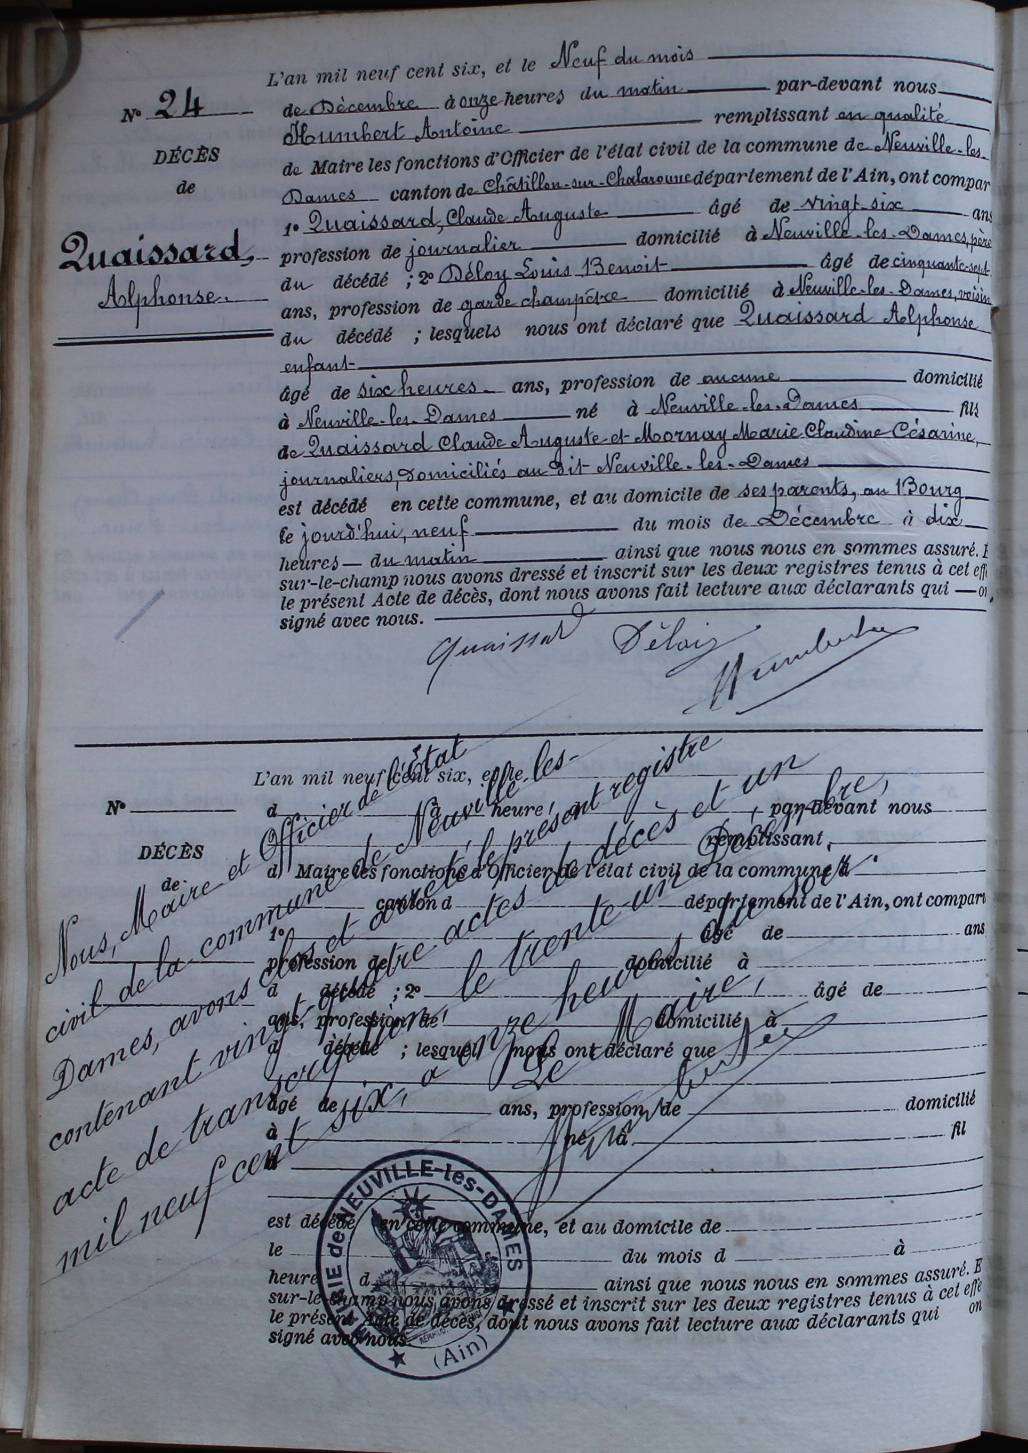 L'an mil neuf cent six, et le Neuf du mois
N° 24
de Décembre à onze heures du matin par-devant nous
Humbert Antoine remplissant en qualité
DÉCÈS
de Maire les fonctions d'Officier de l'état civil de la commune de Neuville-les-
de
Dames canton de Châtillon-sur-Chalaronne département de l'Ain, ont compar
1° Quaissard, Claude Auguste âgé de vingt-six ans
Quaissard,
profession de journalier domicilié à Neuville-les-Dames, père
Alphonse.
du décédé ; 2° Déloy Louis Benoit âgé de cinquante-sept
ans, profession de garde champêtre domicilié à Neuville-les-Dames, voisin
du décédé ; lesquels nous ont déclaré que Quaissard Alphonse
enfant
âgé de six heures ans, profession de aucune domicilié
à Neuville-les-Dames né à Neuville-les-Dames fils
de Quaissard Claude Auguste et Mornay Marie Claudine Césarine,
journaliers, domiciliés au dit Neuville-les-Dames
est décédé en cette commune, et au domicile de ses parents, au Bourg
le jourd'hui, neuf du mois de Décembre à dix
heures du matin ainsi que nous nous en sommes assuré. E
sur-le-champ nous avons dressé et inscrit sur les deux registres tenus à cet effe
le présent Acte de décès, dont nous avons fait lecture aux déclarants qui on
signé avec nous.
Quaissard Déloy
Humbert
L'an mil neuf cent six, et le
N°
d à heure par-devant nous
remplissant
DÉCÈS
de
d Maire les fonctions d'Officier de l'état civil de la commune d
canton d département de l'Ain, ont compar
1° âgé de ans
profession de domicilié à
d décédé ; 2° âgé de
ans, profession de domicilié à
d décédé ; lesquel nous ont déclaré que
âgé de ans, profession de domicilié
à né à fil
d
est décédé en cette commune, et au domicile de
le du mois d à
heure d ainsi que nous nous en sommes assuré. E
sur-le-champ nous avons dressé et inscrit sur les deux registres tenus à cet effe
le présent Acte de décès, dont nous avons fait lecture aux déclarants qui on
signé avec nous.
Nous, Maire et Officier de l'État
civil de la commune de Neuville-les-
Dames, avons clos et arrêté le présent registre
contenant vingt quatre actes de décès et un
acte de transcription, le trente un Décembre,
mil neuf cent six, à onze heures du soir.
Le Maire,
Humbert
MAIRIE de NEUVILLE-les-DAMES
(Ain)